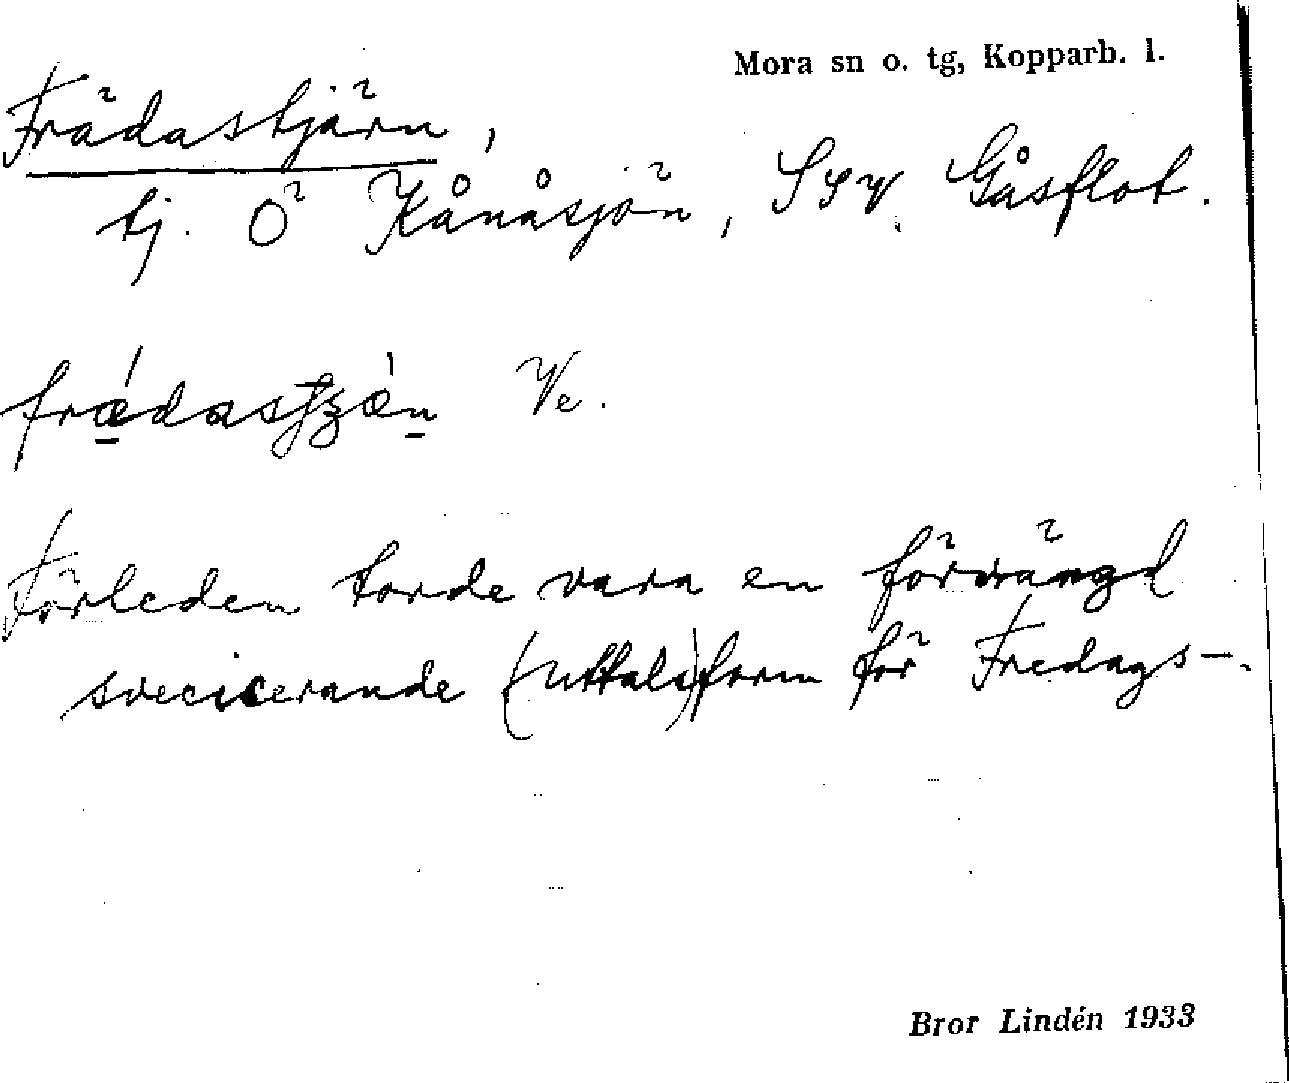 Mora sn o. tg, Kopparb. l.
Frädastjärn,
tj. Ö Kånåsjön, SSV Gåsflot.
Ve.
Förleden torde vara en förvrängd
svecicerande (uttals)form för Fredags-.
Bror Lindén 1933